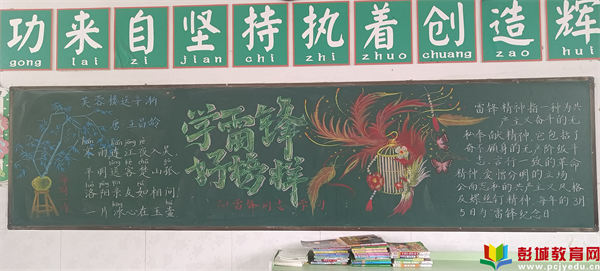 功来自坚持执着创造辉
gong lai zi jian chi zhi zhuo chuang zao hui
芙蓉楼送辛渐
唐 王昌龄
寒雨连江夜入吴
平明送客楚山孤
洛阳亲友如相问
一片冰心在玉壶
学雷锋
好榜样
向雷锋同志学习
雷锋精神指一种为共
产主义奋斗的无
私奉献精神,它包括了
奋不顾身的无产阶级斗
志、言行一致的革命
精神爱憎分明的立场、
公而忘私的共产主义风格
及螺丝钉精神。每年的3月
5日为雷锋纪念日
彭城教育网
www.pcjyedu.cn